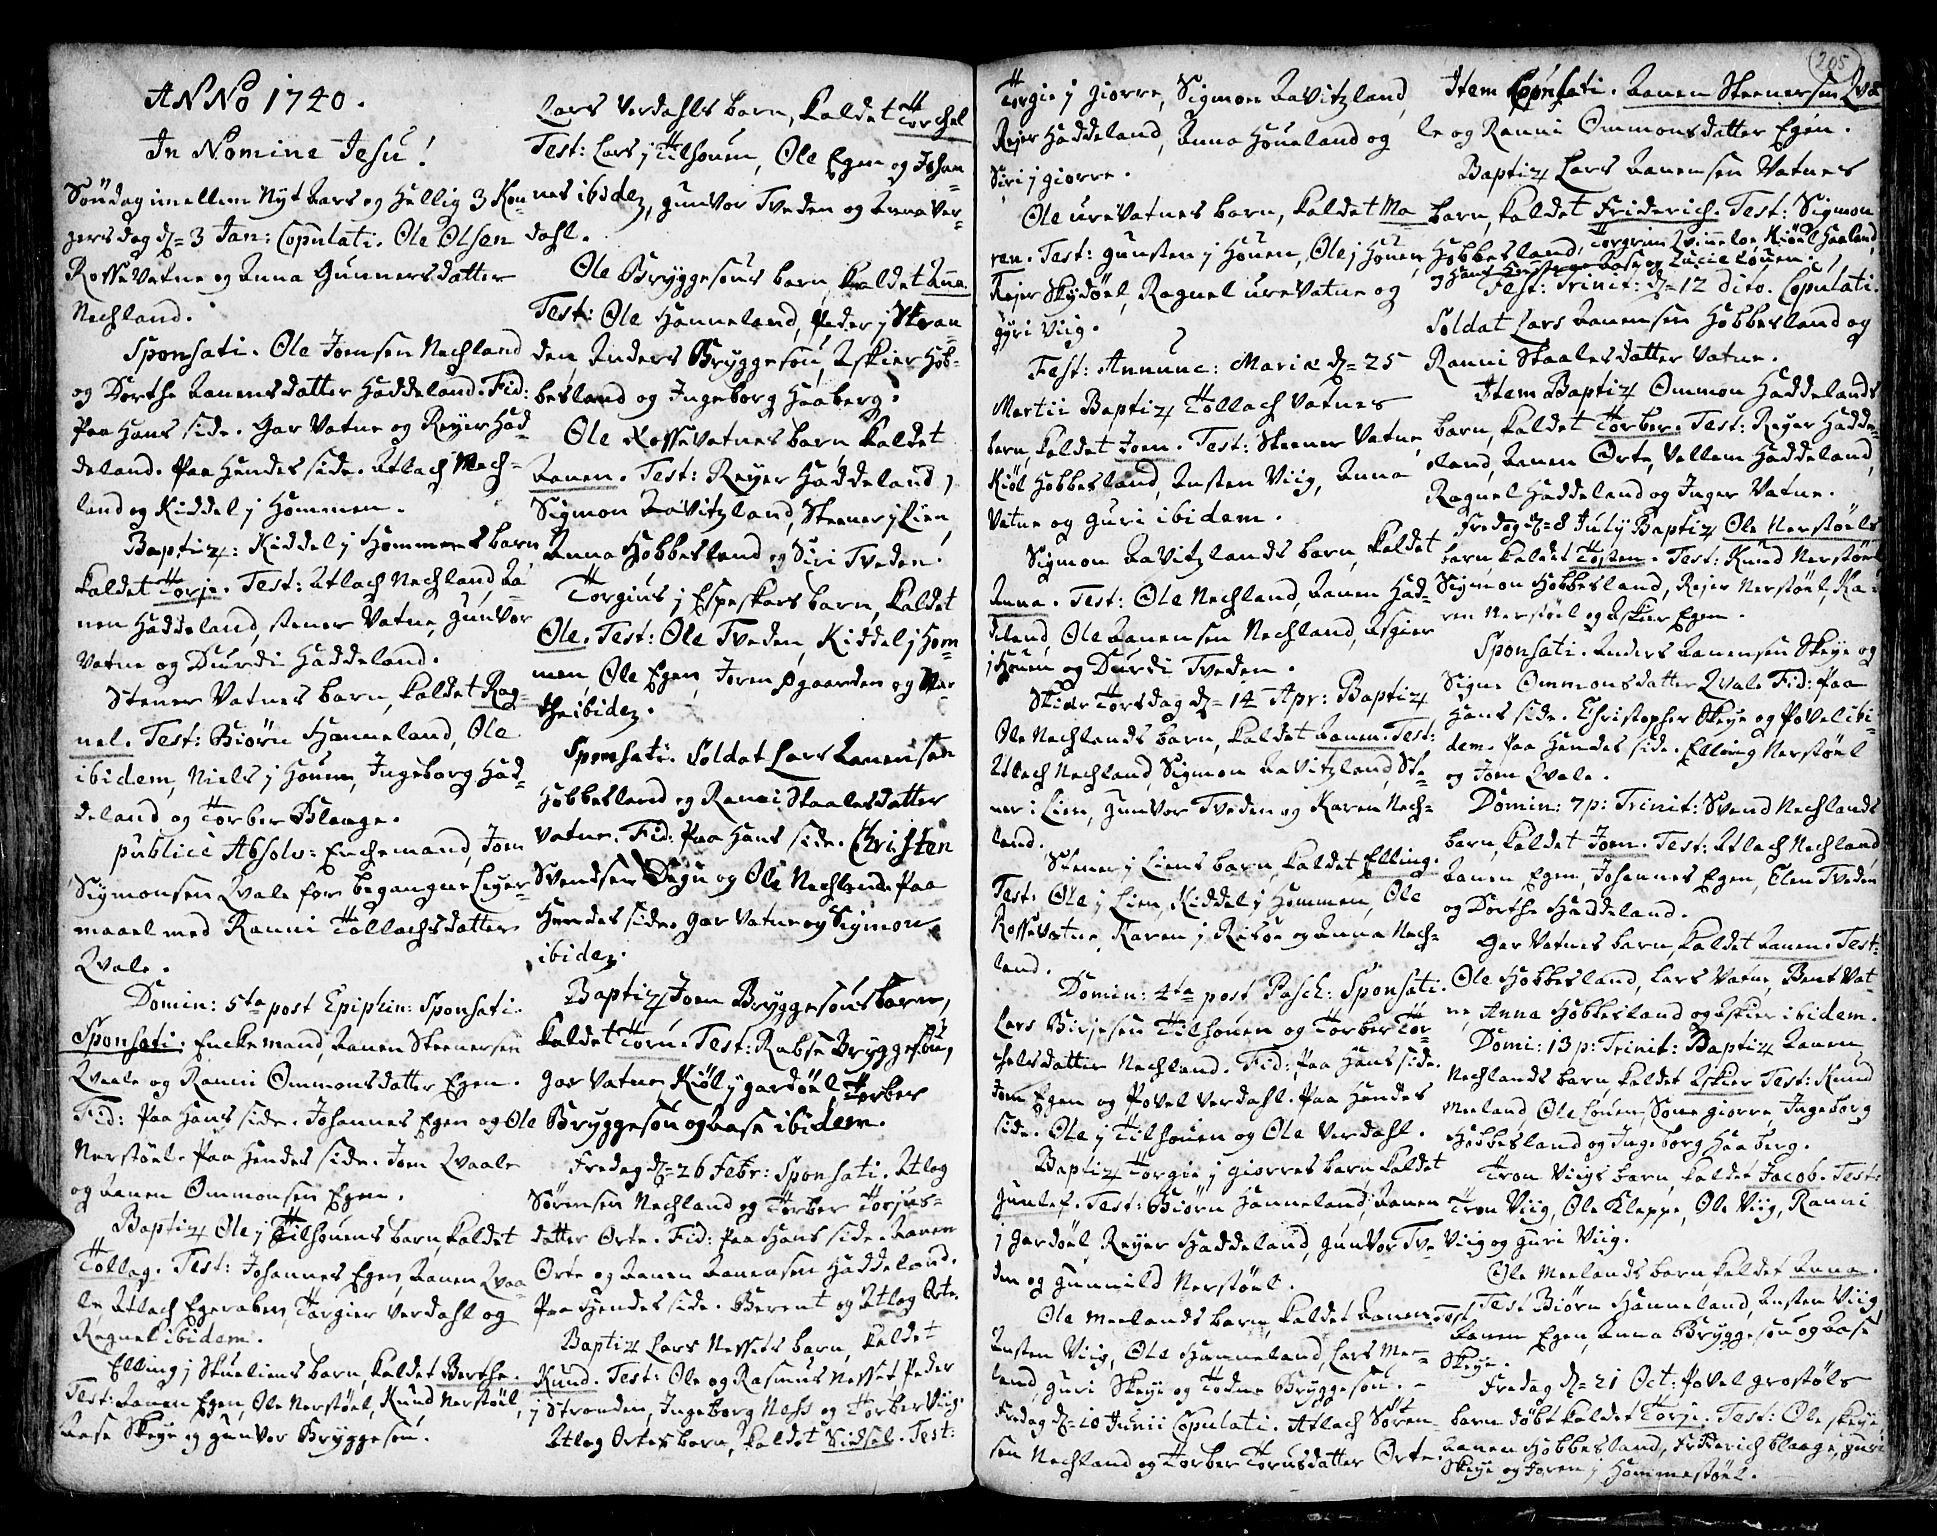 ANNo 1740.
In Nomine Jesu!
Söndag imellem Nyt Aars og Hellig 3 Kon-
gers dag d= 3 Jan: Copulati. Ole Olsen
RosseVatne og Anna Gunnersdatter
Nechland.
Sponsati. Ole Joensen Nechland
og Dorthe Aanensdatter Haddeland. Fid:
Paa Hans side. Gar Vatne og Reyer Had-
deland. Paa Hendes side. Atlach Nech-
land og Kiddel j Hommen.
Baptiz: Kiddel j Hommens barn
kaldet Torje. Test: Atlach Nechland, Aa-
nen Haddeland, stener Vatne, Gunvor
Vatne og Durdi Haddeland.
Stener Vatnes barn, kaldet Rag-
nel. Test: Biörn Hanneland, Ole
ibidem, Niels j Houen, Ingeborg Had-
deland og Torber Blaage.
publice Absolv: Enckemand, Joen
Sigmonsen Qvale for begangne Leyer-
maael med Ranni Tollachsdatter
Qvale.
Domin: 5ta post Epiphn: Sponsati.
Sponsati. Enckemand, Aanen Steenersen
Qvaale og Ranni Ommonsdatter Egen.
Fid: Paa Hans side. Johannes Egen og Ole
Nerstöel. Paa Hendes side. Joen Qvaale
og Aanen Ommonsen Egen.
Baptiz Ole j Tilhouens barn, kaldet
Tollag. Test: Johannes Egen, Aanen Qvaa-
le Atlach Egeraben, Targier Verdahl og
Ragnel ibidem.
Elling j Skuelions barn kaldet Berthe.
Test: Aanen Egen, Ole Nerstöel, Knud Nerstöel,
Aase Skeye og Gunvor Bryggesou.
Lars Verdahls barn, kaldet Torchel
Test: Lars j Tilhouen, Ole Egen og Johan-
nes ibidez, Gunvor Tveden og Anna Ver-
dahl.
Ole Bryggesous barn, kaldet Ana.
Test: Ole Hanneland, Peder j Stran-
den, Anders Bryggesou, Askier Hob-
besland og Ingeborg Haaberg.
Ole Rossevatnes barn kaldet
Aanen. Test: Reyer Haddeland,
Sigmon Aavitzland, Steener j Lien
Anna Hobbesland og Siri Tveden.
Torgius j Espeskars barn, kaldet
Ole. Test: Ole Tveden, Kiddel j Hom-
men, Ole Egen, Joren Ögaarden og Mar-
the ibidez.
Sponsati. Soldat Lars Aanensen
Hobbesland og Ranni Staalesdatter
Vatne. Fid: Paa Hans side. Christen
Svendsen Degn og Ole Nechland. Paa
Hendes side. Gar Vatne og Sigmon
ibidez.
Baptiz Joen Bryggesous barn,
kaldet Torn. Test: Rabse Bryggesou,
Gar Vatne, Kiöl j Gardöel Torber
Bryggesou og Aase ibidem.
Fredag d= 26 Febr: Sponsati. Atlag
Sörensen Nechland og Torber Torjus-
datter Örte. Fid: Paa Hans side. Aanen
Örte og Aanen Aanensen Haddeland.
Paa Hendes side. Berent og Atlag Örte.
Baptiz Lars Nessets barn, kaldet
Knud. Test: Ole og Rasmus Nesset, Peder
j Stranden, Ingeborg Ness og Torber Viig.
Atlag Ortes barn, kaldet Sidsel. Test:
Torgie j Giorre, Sigmon Aavitzland,
Rejer Haddeland, Anna Houeland og
Siri j giorre.
Ole ureVatnes barn, kaldet Ma-
ren. Test: Gunsten j Houen, Ole j Houen,
Rejer Skydöel, Ragnel ureVatne og
Gyri Viig.
Fest: Annunc: Mariæ d= 25
Martii Baptiz Tollach Vatnes
barn, kaldet Joen. Test: Steener Vatne,
Kiöl Hobbesland, Austen Viig, Anna
Vatne og Guri ibidem.
Sigmon Aavitzlands barn, kaldet
Anna. Test: Ole Nechland, Aanen Had-
deland, Ole Aanensen Nechland, Asgier
j Houen og Durdi Tveden.
Skier Torsdag d= 14 Apr: Baptiz
Ole Nechlands barn, kaldet Aanen. Test:
Atlach Nechland, Sigmon Aavitzland, Ste-
ner i Lien, Gunvor Tveden og Karen Nech-
land.
Stener j Liens barn, kaldet Elling.
Test: Ole j Lien, Kiddel j Hommen, Ole
Rossevatne, Karen j Risöe og Anna Nech-
land.
Domin: 4ta post Pasch: Sponsati.
Lars Birjesen Tilhouen og Torber Tor-
chelsdatter Nechland. Fid: Paa Hans side.
Joen Egen og Povel Verdahl. Paa Hendes
side. Ole j Tilhouen og Ole Verdahl.
Baptiz Torgie j giorres barn kaldet
Gunlef. Test: Biörn Hanneland, Aanen
j Gardöel, Reyer Haddeland, Gunvor Tve-
den og Gunnild Nerstöel.
Ole Meelands barn, kaldet Aanen. Test:
Austen Viig, Ole Hanneland, Lars Mee-
land Guri Skeye og Todne Bryggesou.
Fredag d= 10 Junii Copulati. Atlach Sören-
sen Nechland og Torber Torjusdatter Örte.
205
Item Copulati. Aanen Steenersen Qva-
le og Ranni Ommonsdatter Egen.
Baptiz Lars Aanensen Vatnes
barn, kaldet Friderich. Test: Sigmon
Hobbesland, Torgrim Qvinnelae, Kiöel Haaland,
og Hans Hustrue Aase og Lucie Louen.
Fest: Trinit: d= 12 dito. Copulati.
Soldat Lars Aanensen Hobbesland og
Ranni Staalesdatter Vatne.
Item Baptiz Ommon Haddelands
barn, kaldet Torber. Test: Reyer Hadde-
land, Aanen Örte, Vellem Haddeland,
Ragnel Haddeland og Inger Vatne.
Fredag d= 8 July Baptiz Ole Nerstöels
barn kaldet Tosten. Test: Knud Nerstöel
Sigmon Hobbesland, Rejer Nerstöel, Ka-
ren Nerstöel og Askier Egen.
Sponsati. Anders Aanensen Skeye og
Signe Ommonsdatter Qvale. Fid: Paa
Hans side. Christopher Skeye og Povel ibi-
dem. Paa Hendes side. Elling Nerstöel
og Joen Qvale.
Domin: 7 p: Trinit: Svend Nechlands
barn, kaldet Joen. Test: Atlach Nechland
Aanen Egen, Johannes Egen, Elen Tveden
og Dorthe Haddeland.
Gar Vatnes barn, kaldet Aanen. Test:
Ole Hobbesland, Lars Vatne, Bent Vat-
ne, Anna Hobbesland og Askier ibidem.
Domi: 13 p: Trinit: Baptiz Aanen
Nechlands barn kaldet Askier Test: Knud
Meeland, Ole Louen, Sone giorre, Ingeborg
Hobbesland og Ingeborg Haaberg.
Tron Viigs barn, kaldet Jacob. Test:
Tron Viig, Ole Kleppe, Ole Viig, Ranni
Viig og Guri Viig.
Ole Meelands barn kaldet Anna.
Test Biörn Hanneland, Austen Viig
Aanen Egen, Anna Bryggesou og Aase
Skeye.
Fredag d= 21 Oct: Povel Grostöls
barn döbt kaldet Torje. Test: Ole Skeye,
Aanen Hobbesland, Friderich Blaage, Guri
Skeye og Joren j Hommestöel.